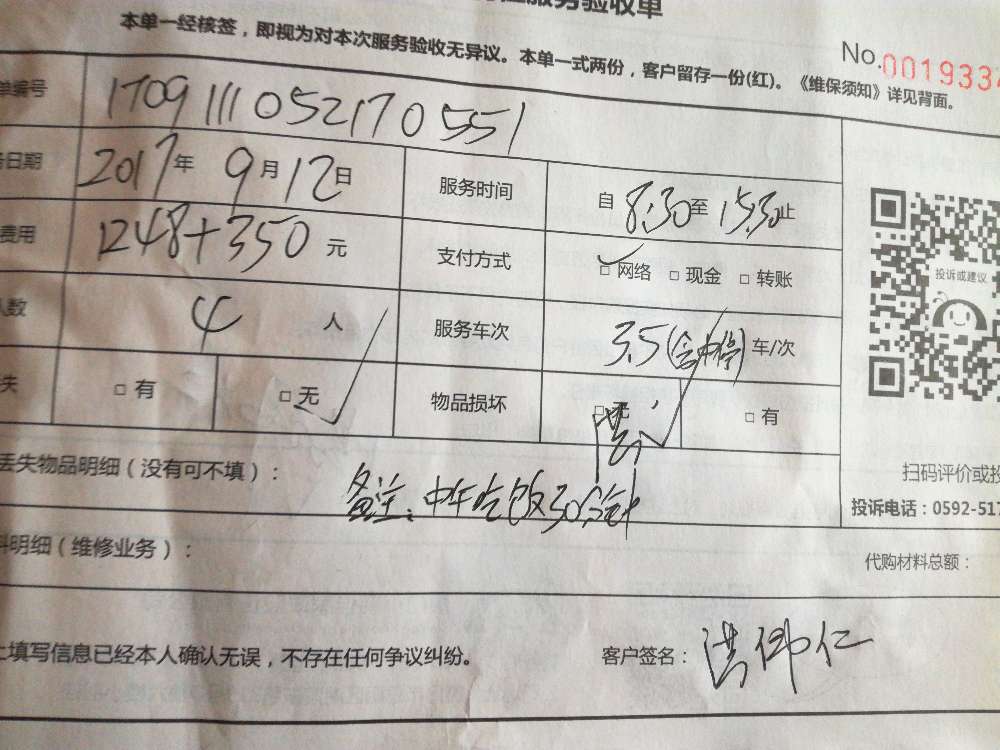 服务验收单
本单一经核签，即视为对本次服务验收无异议。本单一式两份，客户留存一份(红)。《维保须知》详见背面。
No.0019334
单编号 1709111052170551
务日期 2017年 9月12日 服务时间 自 8:30至 15:30止
费用 1248+350 元 支付方式 □ 网络 □ 现金 □ 转账
人数 4 人 服务车次 3.5(含中停) 车/次
失 □ 有 □ 无 物品损坏 □ 无 □ 有
投诉或建议
丢失物品明细（没有可不填）：
备注：中午吃饭30分钟
扫码评价或投
投诉电话：0592-517
料明细（维修业务）：
代购材料总额：
上填写信息已经本人确认无误，不存在任何争议纠纷。 客户签名：洪伟仁